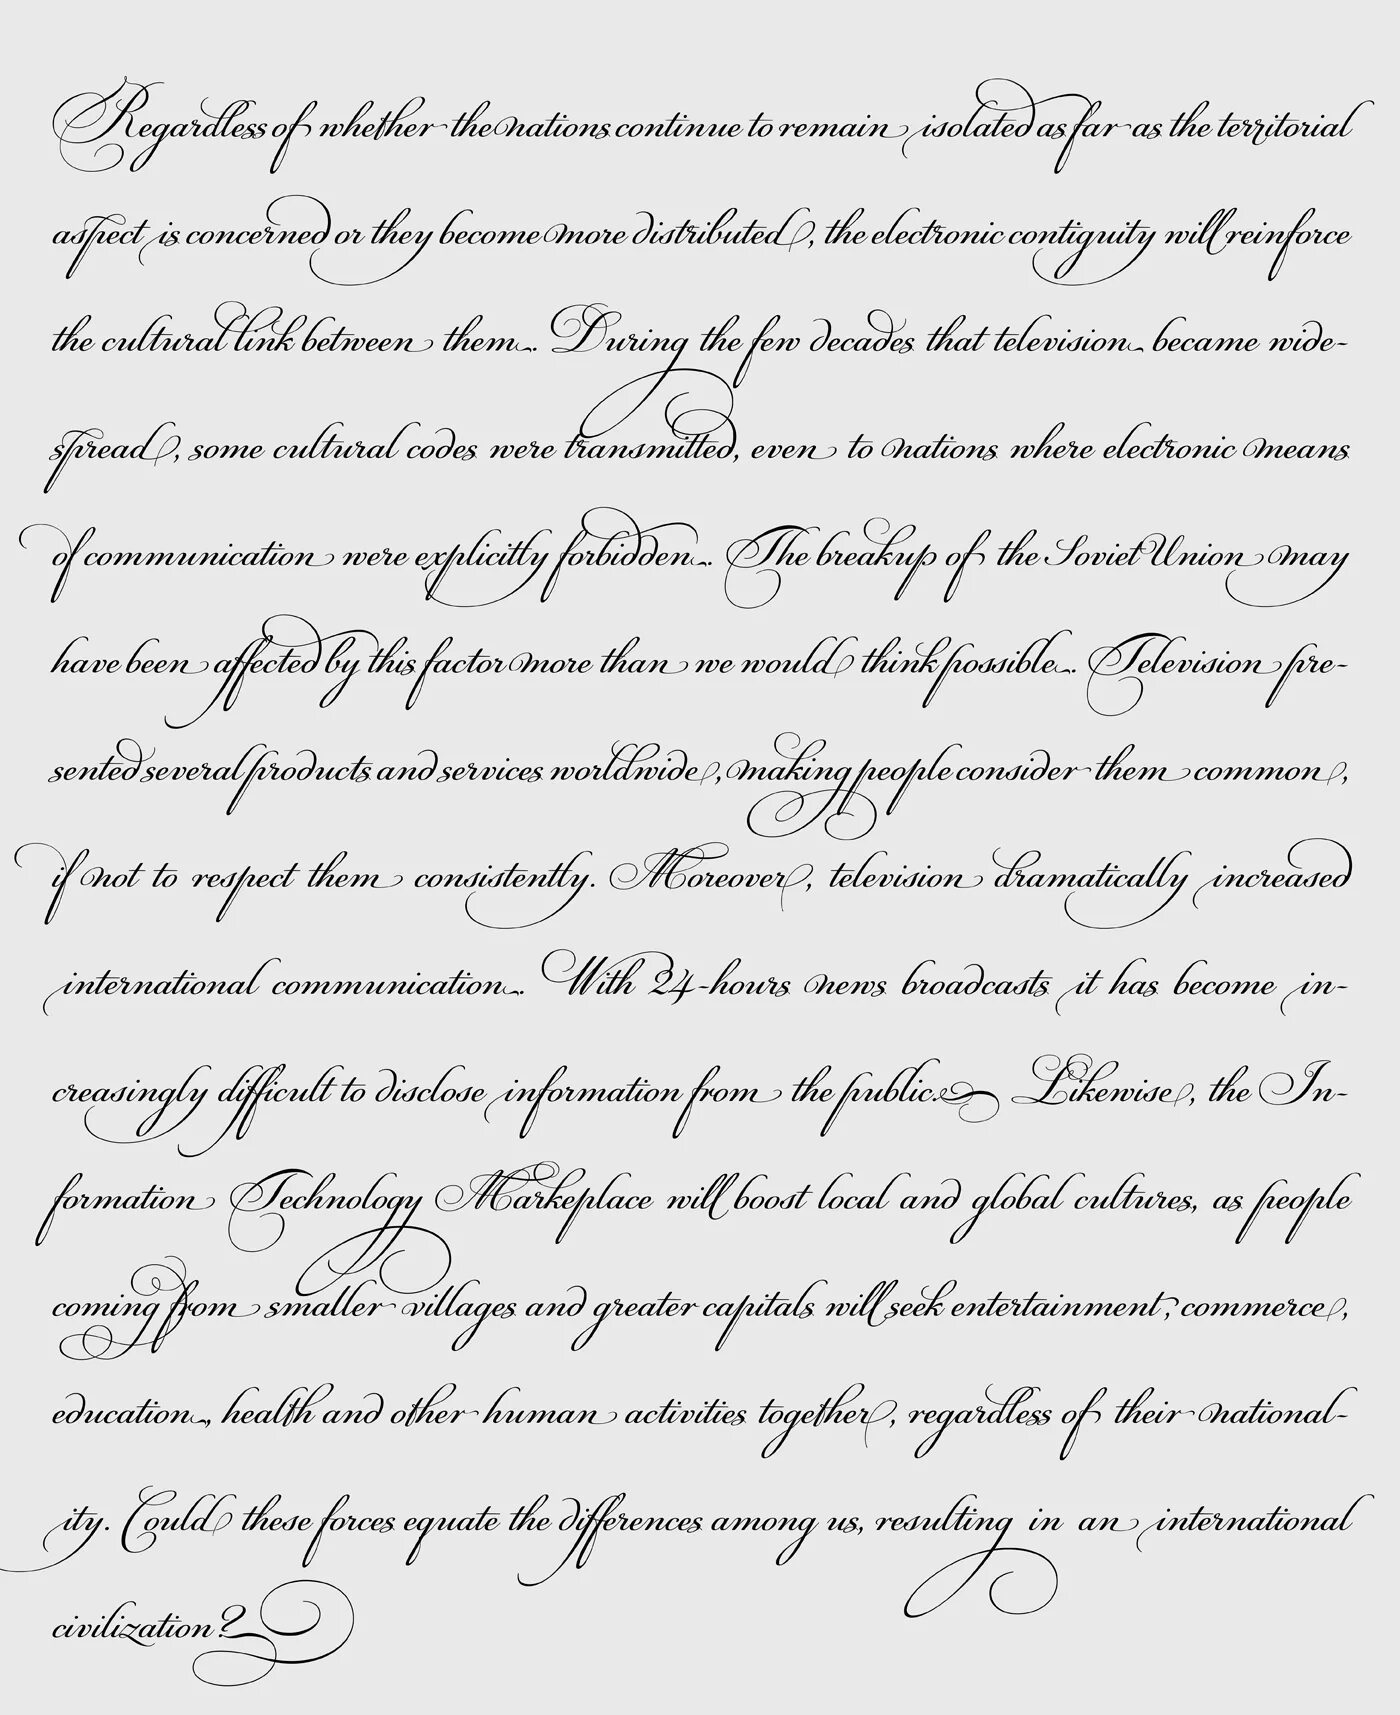 Regardless of whether the nations continue to remain isolated as far as the territorial
aspect is concerned or they become more distributed, the electronic contiguity will reinforce
the cultural link between them. During the few decades that television became wide-
spread, some cultural codes were transmitted, even to nations where electronic means
of communication were explicitly forbidden. The breakup of the Soviet Union may
have been affected by this factor more than we would think possible. Television pre-
sented several products and services worldwide, making people consider them common,
if not to respect them consistently. Moreover, television dramatically increased
international communication. With 24-hours news broadcasts it has become in-
creasingly difficult to disclose information from the public. Likewise, the In-
formation Technology Markeplace will boost local and global cultures, as people
coming from smaller villages and greater capitals will seek entertainment, commerce,
education, health and other human activities together, regardless of their national-
ity. Could these forces equate the differences among us, resulting in an international
civilization?